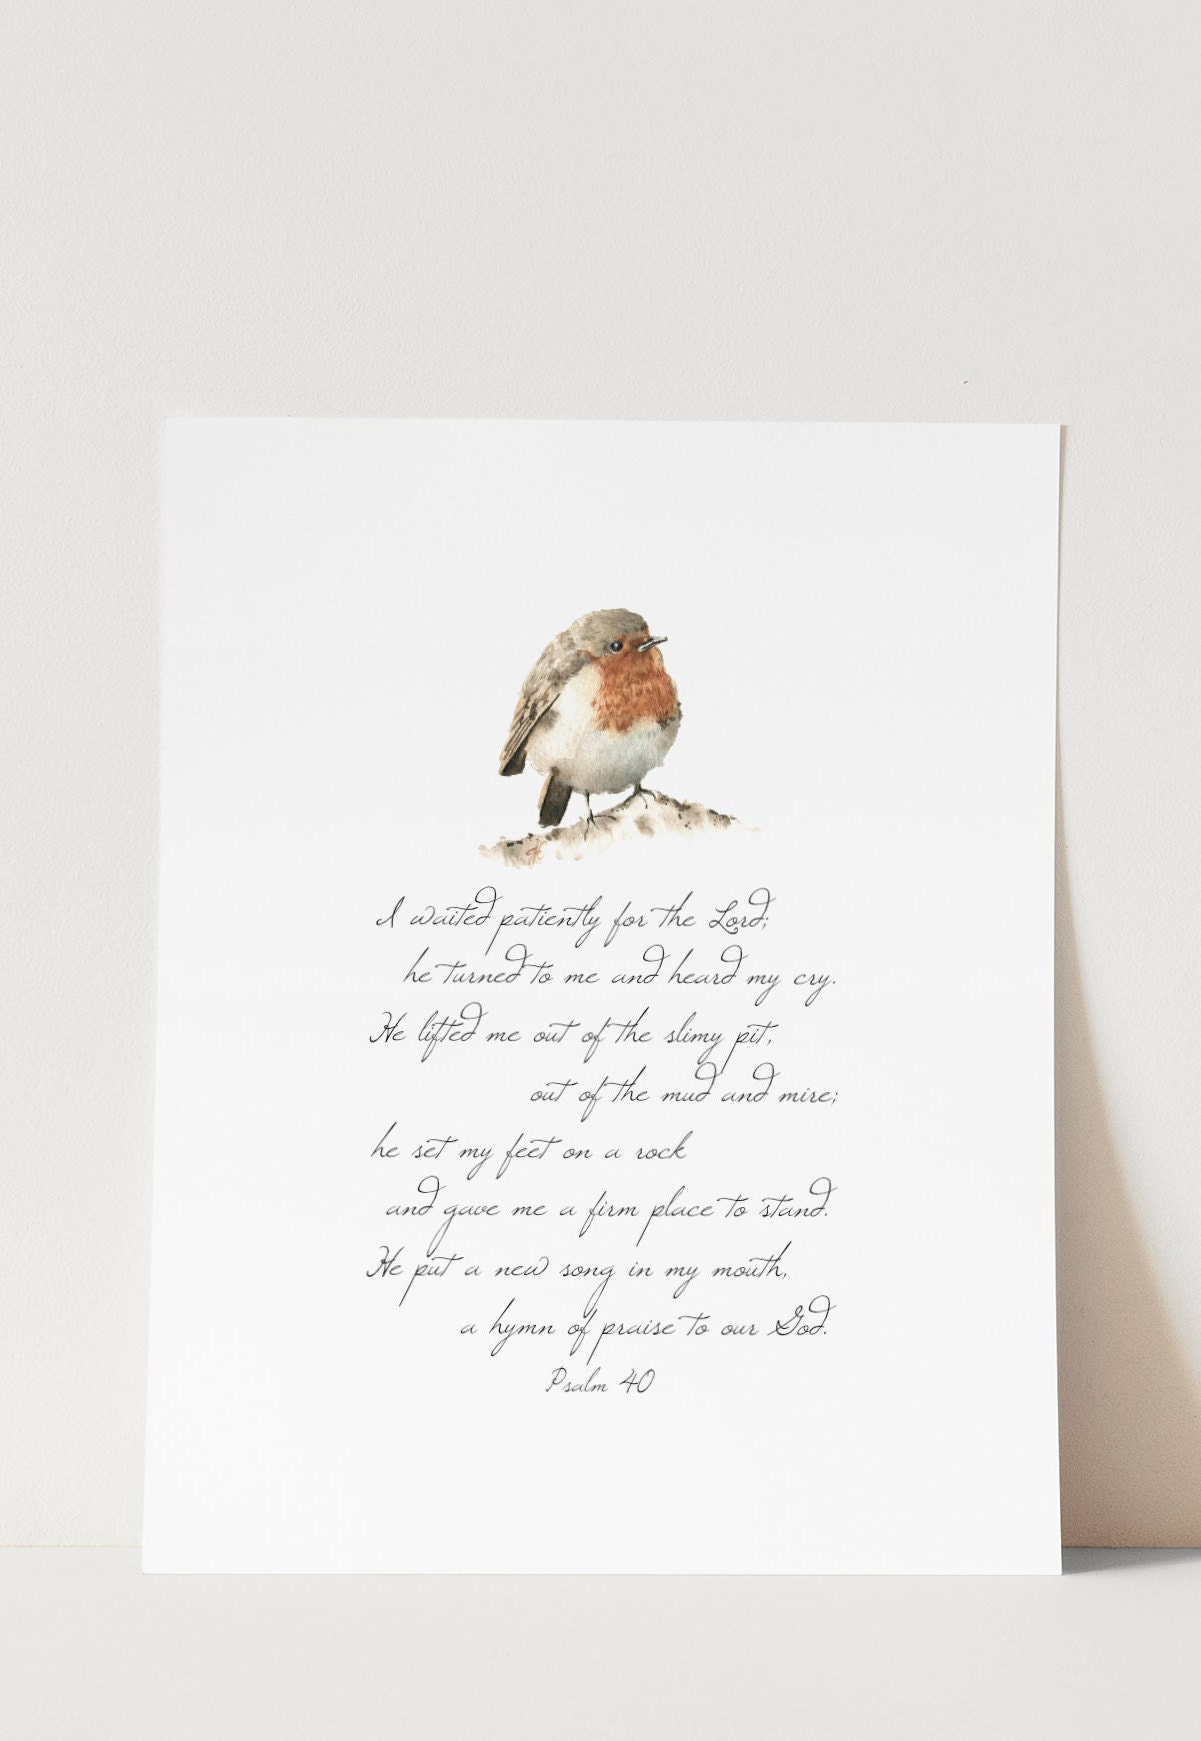 I waited patiently for the Lord;
he turned to me and heard my cry.
He lifted me out of the slimy pit,
out of the mud and mire;
he set my feet on a rock
and gave me a firm place to stand.
He put a new song in my mouth,
a hymn of praise to our God.
Psalm 40